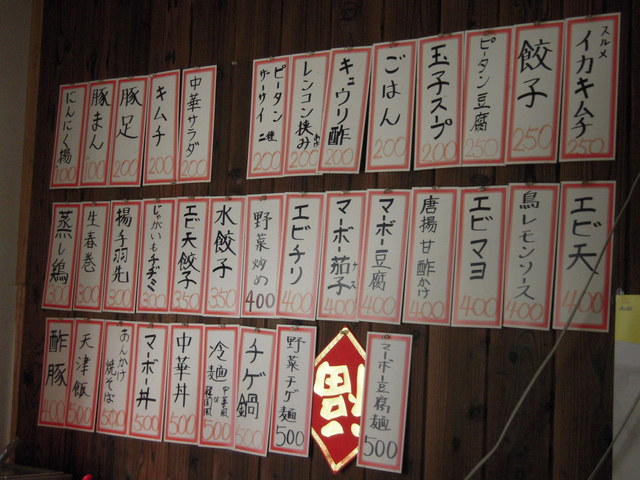 スルメ
イカキムチ
250
餃子
250
ピータン豆腐
250
玉子スープ
200
ごはん
200
キュウリ酢
200
レンコン挟み揚げ
200
ピータン
ザーサイ
二種
200
中華サラダ
200
キムチ
200
豚足
200
豚まん
100
にんにく揚
100
エビ天
400
鳥レモンソース
400
エビマヨ
400
唐揚甘酢かけ
400
マーボー豆腐
400
マーボー茄子
ナス
400
エビチリ
400
野菜炒め
400
水餃子
350
エビ天餃子
350
じゃがいもチヂミ
300
揚手羽先
300
生春巻
300
蒸し鶏
300
マーボー豆腐麺
500
福
野菜チゲ麺
500
チゲ鍋
500
冷麺
中華風
韓国風
500
中華丼
500
マーボー丼
500
あんかけ
焼そば
500
天津飯
500
酢豚
400